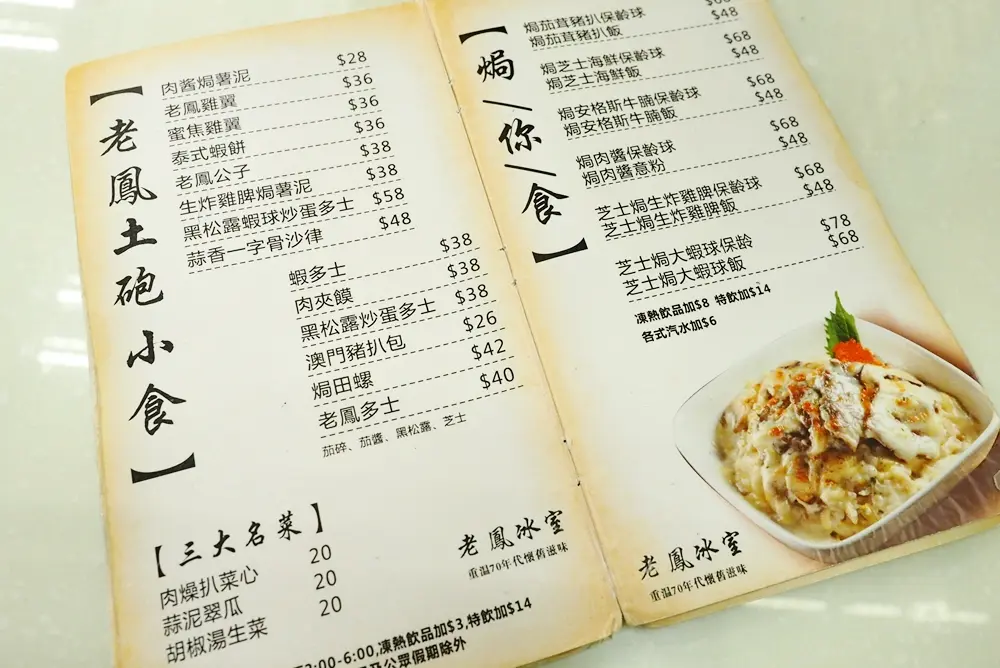 【老鳳土砲小食】
肉酱焗薯泥 $28
老鳳雞翼 $36
蜜焦雞翼 $36
泰式蝦餅 $36
老鳳公子 $38
生炸雞脾焗薯泥 $38
黑松露蝦球炒蛋多士 $58
蒜香一字骨沙律 $48
蝦多士 $38
肉夾饃 $38
黑松露炒蛋多士 $38
澳門豬扒包 $26
焗田螺 $42
老鳳多士 $40
茄碎、茄醬、黑松露、芝士
【三大名菜】
肉燥扒菜心 20
蒜泥翠瓜 20
胡椒湯生菜 20
老鳳冰室
重温70年代懷舊滋味
:00-6:00,凍熱飲品加$3,特飲加$14
公眾假期除外
【焗/你/食】
焗茄茸豬扒保齡球
焗茄茸豬扒飯 $48
焗芝士海鮮保齡球 $68
焗芝士海鮮飯 $48
焗安格斯牛腩保齡球 $68
焗安格斯牛腩飯 $48
焗肉醬保齡球 $68
焗肉醬意粉 $48
芝士焗生炸雞脾保齡球 $68
芝士焗生炸雞脾飯 $48
芝士焗大蝦球保齡 $78
芝士焗大蝦球飯 $68
凍熱飲品加$8 特飲加$14
各式汽水加$6
老鳳冰室
重温70年代懷舊滋味